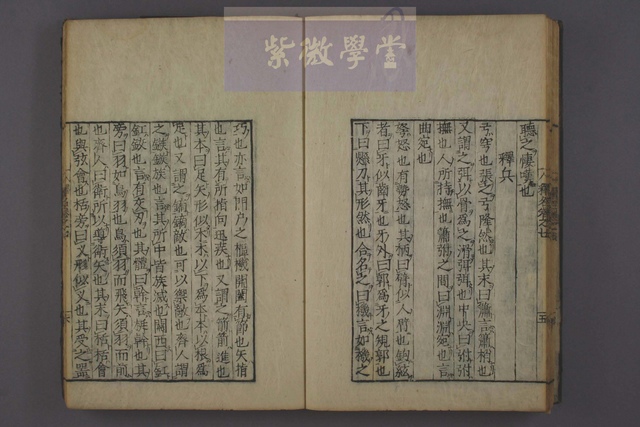 紫微學堂
聽之
也
釋兵
弓穹也張之弓隆然也其末曰簫言簫梢也
又謂之弭以骨為之滑弭弭也中央曰弣弣
撫也人所持撫也簫弣之間曰淵淵宛也言
曲宛也
弩怒也有勢怒也其柄曰臂似人臂也鉤絃
者曰牙似齒牙也牙外曰郭為牙之規郭也
下曰懸刀其形然也合名之曰機言如機之
巧也亦言如門户之樞機開闔有節也矢指
也言其有所指向迅疾也又謂之箭箭進也
其本曰足矢形似木木以下為本本以根為
足也又謂之鏑鏑敵也可以禦敵也齊人謂
之鏃鏃族也言其所中皆族滅也關西曰釭
釭鉸也言有交刃也其體曰幹言挺幹也其
旁曰羽如鳥羽也鳥須羽而飛矢須羽而前
也齊人曰衛所以導衛矢也其末曰栝栝會
也與弦會也栝旁曰叉形似叉也其受之器